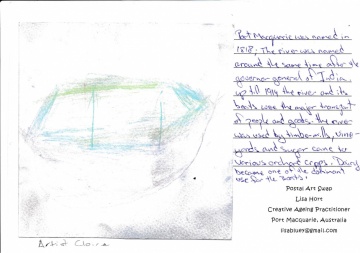 Port Macquarie was named in
1818, The river was named
around the same time after the
governor general of India
up til 1914 the river and its
boats were the major transport
of people and goods. The river
was used by timbermills, vine-
yards and sugar cane to
various orchard crops. Dairy
became one of the dominant
use for the boats.
Postal Art Swap
Lisa Hort
Creative Ageing Practitioner
Port Macquarie, Australia
lisabluer@gmail.com
Artist Claire